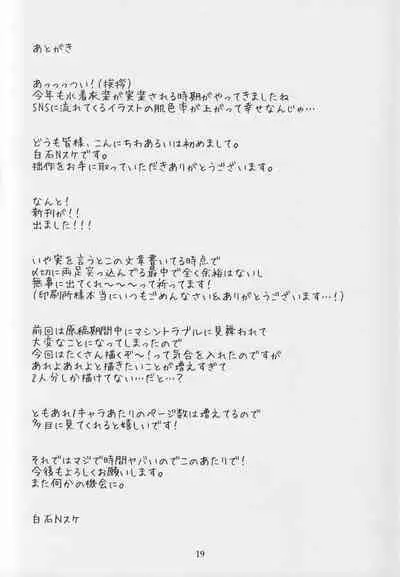 あとがき
あっっっっつい!(挨拶)
今年も水着衣装が実装される時期がやってきましたね
SNSに流れてくるイラストの肌色率が上がって幸せなんじゃ…
どうも皆様、こんにちわあるいは初めまして。
白石Nスケです。
拙作をお手に取っていただきありがとうございます。
なんと!
新刊が!!
出ました!!!
いや実を言うとこの文章書いてる時点で
〆切に両足突っ込んでる最中で全く余裕はないし
無事に出てくれ〜〜〜って祈ってます!
(印刷所様本当にいつもごめんなさい&ありがとうございます…!)
前回は原稿期間中にマシントラブルに見舞われて
大変なことになってしまったので
今回はたくさん描くぞ〜!って気合を入れたのですが
あれよあれよと描きたいことが増えすぎて
2人分しか描けてない…だと…?
ともあれ1キャラあたりのページ数は増えてるので
多目に見てくれると嬉しいです!
それではマジで時間ヤバいのでこのあたりで!
今後もよろしくお願いします。
また何かの機会に。
白石Nスケ
19